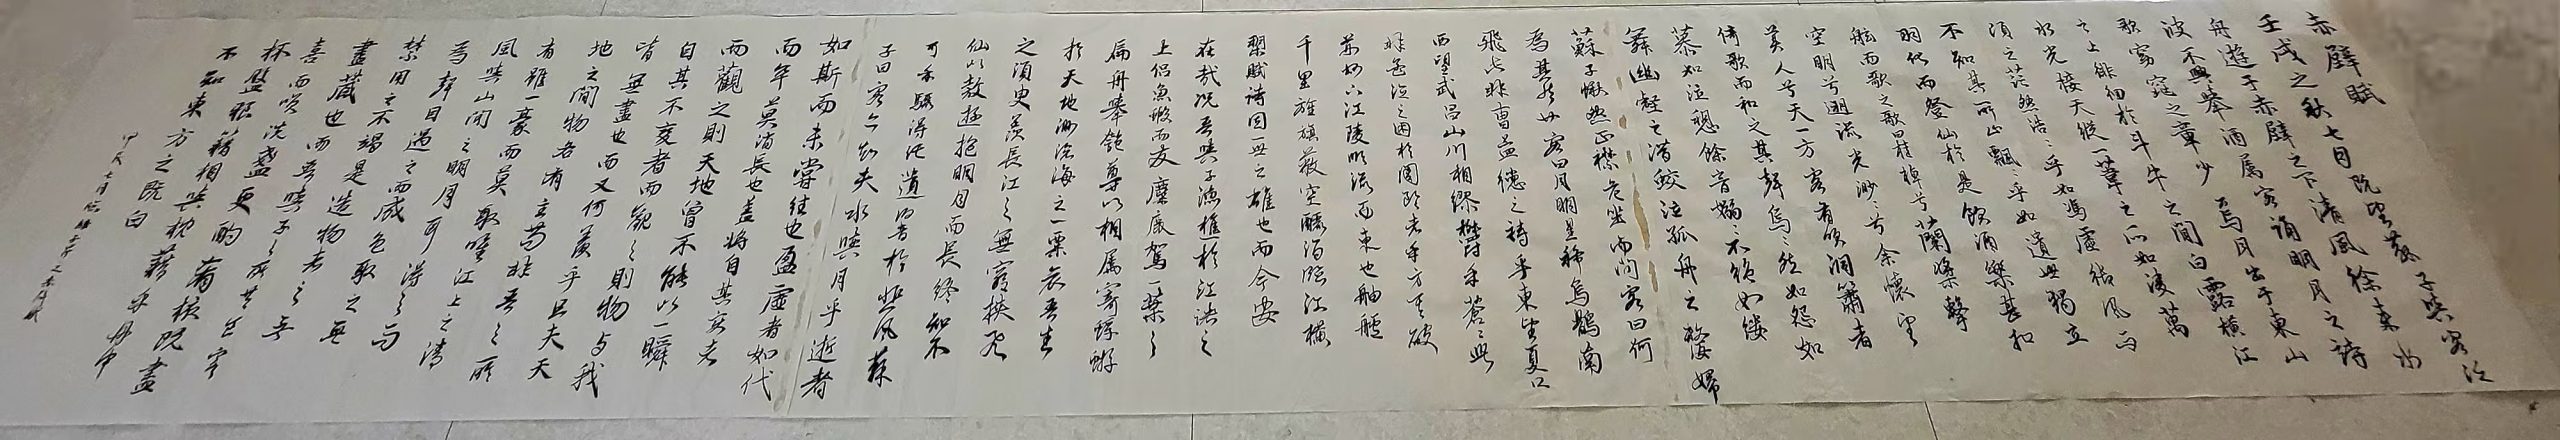 赤壁賦
壬戌之秋七月既望蘇子與客泛
舟遊于赤壁之下清風徐來水
波不興舉酒属客诵明月之詩
歌窈窕之章少焉月出于東山
之上徘徊於斗牛之間白露橫江
水光接天縱一葦之所如凌萬
頃之茫然浩〻乎如馮虛御風而
不知其所止飄〻乎如遺世獨立
羽化而登仙於是飲酒樂甚扣
舷而歌之歌曰桂棹兮蘭槳擊
空明兮溯流光渺〻兮余懷望
美人兮天一方客有吹洞簫者
倚歌而和之其聲烏〻然如怨如
慕如泣
餘音嫋〻不絕如縷
舞幽壑之潛蛟泣孤舟之嫠婦
蘇子愀然正襟危坐而問客曰何
為其然也客曰月明星稀烏鵲南
飛此非曹孟德之詩乎東望夏口
西望武昌山川相繆鬱乎蒼〻此
非孟德之困於周郎者乎方其破
荊州下江陵順流而東也舳艫
千里旌旗蔽空釃酒臨江橫
槊賦詩固一世之雄也而今安
在哉况吾與子漁樵於江渚之
上侣魚蝦而友麋鹿駕一葉之
扁舟舉匏尊以相属寄蜉蝣
於天地渺滄海之一粟哀吾生
之須臾羡長江之無窮挾飛
仙以敖遊抱明月而長終知不
可乎驟得託遺響於悲風蘇
子曰客亦知夫水與月乎逝者
如斯而未嘗往也盈虛者如代
而卒莫消長也蓋將自其変者
而觀之則天地曾不能以一瞬
自其不変者而觀之則物与我
皆無盡也而又何羨乎且夫天
地之間物各有主苟非吾之所
有雖一豪而莫取唯江上之清
風與山间之明月耳得之而
為聲目遇之而成色取之無
禁用之不竭是造物者之无
盡藏也而吾與子之所共
喜而笑洗盞更酌肴核既盡
杯盤狼藉相與枕藉乎舟中
不知東方之既白